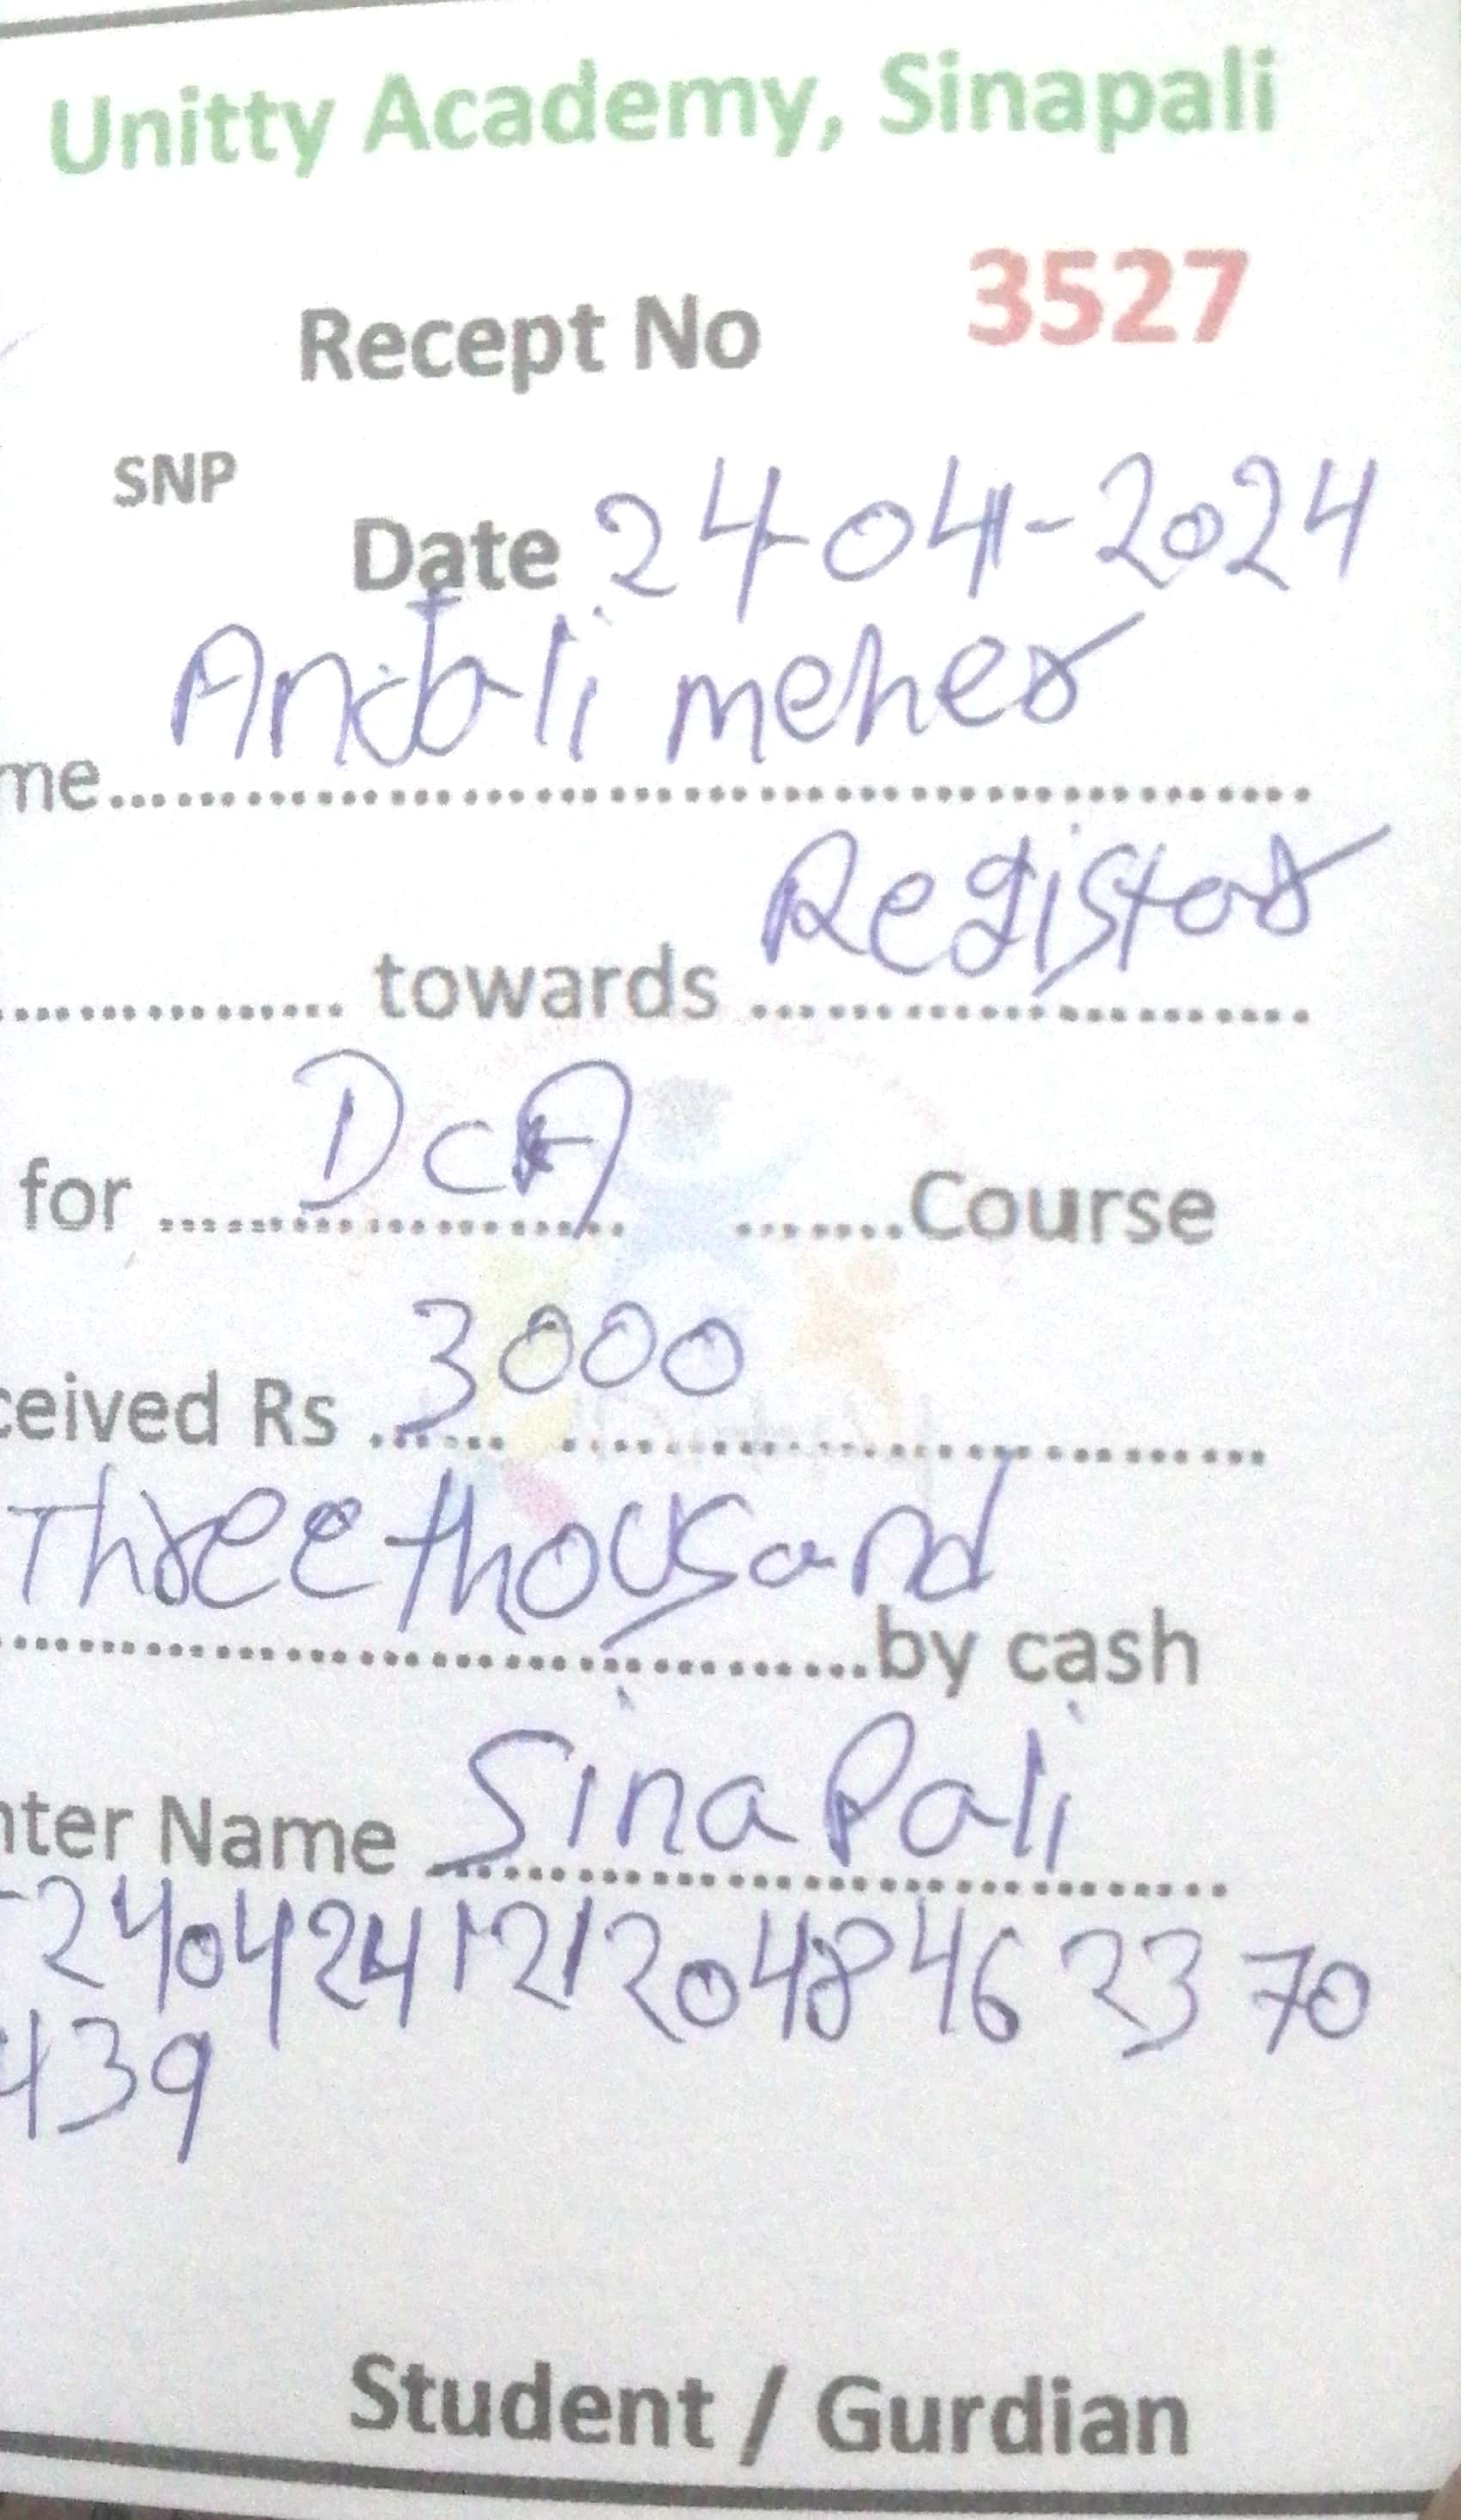 Unitty Academy, Sinapali
Recept No 3527
SNP
Date 24-04-2024
me.......... Anjali meher
.......... towards Register
for DCA .......Course
ceived Rs 3000
Three thousand
..........by cash
nter Name Sinapali
-2404241212048462370
439
Student / Gurdian